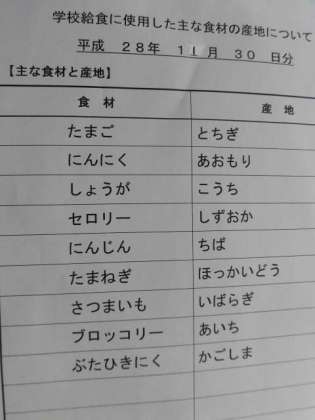 学校給食に使用した主な食材の産地について
平成 28年 11月 30日分
【主な食材と産地】
食材 産地
たまご とちぎ
にんにく あおもり
しょうが こうち
セロリー しずおか
にんじん ちば
たまねぎ ほっかいどう
さつまいも いばらぎ
ブロッコリー あいち
ぶたひきにく かごしま